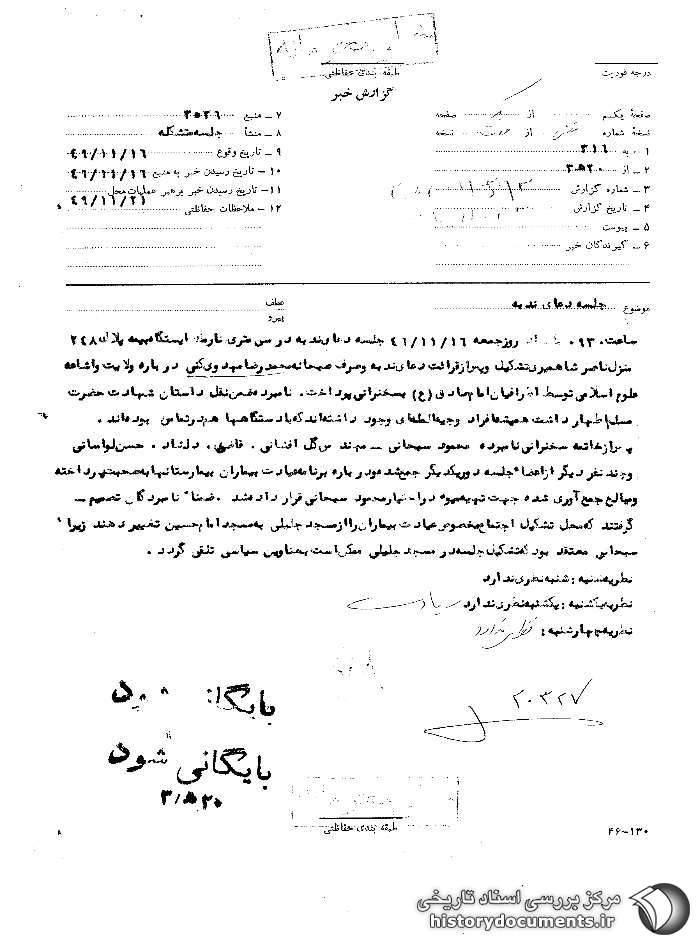 طبقه بندی حفاظتی
درجه فوریت
گزارش خبر
صفحهٔ یکم از یک صفحه
نسخهٔ شماره از نسخه
۱ – به ۳۱۶
۲ – از ۲۰ ه‍ ۳
۳ – شماره گزارش
۴ – تاریخ گزارش
۵ – پیوست
۶ – گیرندگان خبر
۷ – منبع ۳۵۳۶
۸ – منشأ جلسه متشکله
۹ – تاریخ وقوع ۴۹/۱۱/۱۶
۱۰ – تاریخ رسیدن خبر به منبع ۴۹/۱۱/۱۶
۱۱ – تاریخ رسیدن خبر برهبر عملیات محل ۴۹/۱۱/۲۱
۱۲ – ملاحظات حفاظتی
موضوع جلسه دعای ندبه
عطف
پیرو
ساعت ۰۹۳۰ روز جمعه ۴۹/۱۱/۱۶ جلسه دعا وندبه در سی متری نارمک ایستگاه بیمه پلاک ۲۴۸
منزل ناصر شاهمیری تشکیل و پس از قرائت دعای ندبه و صرف صبحانه محمد رضا مهدوی کنی در باره ولایت واشاعه
علوم اسلامی توسط اطرافیان امام صادق (ع) بسخنرانی پرداخت . نامبرده ضمن نقل داستان شهادت حضرت
مسلم اظهار داشت همیشه افراد وجیه المله‌ای وجود داشته‌اند که با دستگاهها هم در تماس بوده‌اند .
پس از خاتمه سخنرانی نامبرده محمود سبحانی – مهند س گل افشانی . قاضی . دلشاد . حسن لواسانی
و چند نفر دیگر از اعضاء جلسه دور یکدیگر جمع شده و در باره برنامه عیادت بیماران بیمارستانها به صحبت پرداخته
ومبالغ جمع آوری شده جهت تهیه میوه در اختیار محمود سبحانی قرار داده شد . ضمناً نامبردگان تصمیم –
گرفتند که محل تشکیل اجتماع مخصوص عیادت بیماران را از مسجد جلیلی به مسجد امام حسین تغییر دهند زیرا
سبحانی معتقد بود که تشکیل جلسه در مسجد جلیلی ممکن است به عناوین سیاسی تلقی گردد .
نظریه شنبه : شنبه نظری ندارد
نظریه یکشنبه : یکشنبه نظری ندارد
نظریه چهارشنبه : نظری ندارد
۲۰۳۲۷
بایگانی شود
بایگانی شود
۲۰ ه‍ ۳
طبقه بندی حفاظتی
۴۶-۱۳۰
مرکز بررسی اسناد تاریخی
historydocuments.ir